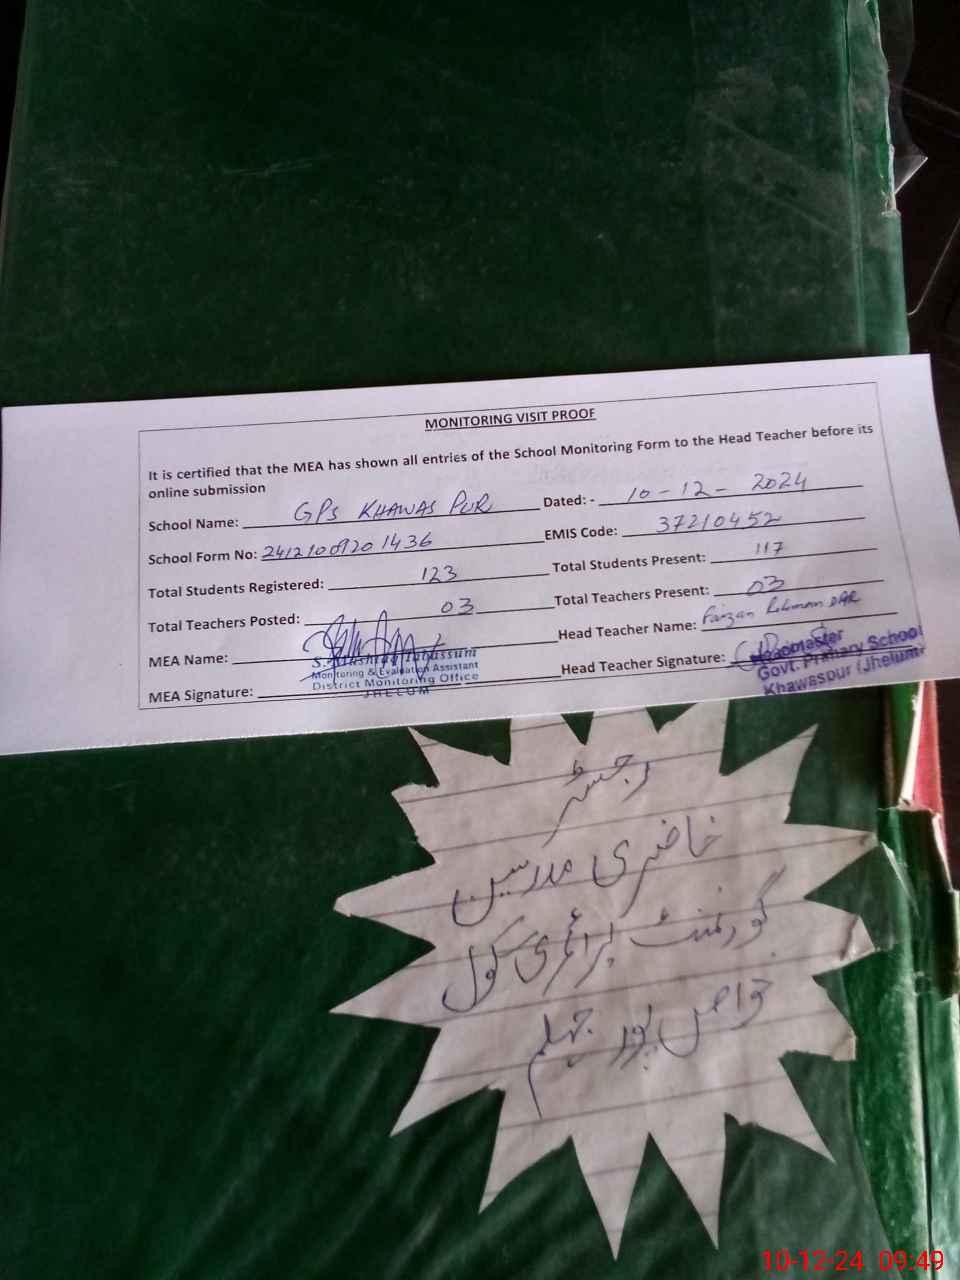 MONITORING VISIT PROOF
It is certified that the MEA has shown all entries of the School Monitoring Form to the Head Teacher before its
online submission
School Name: GPS KHAWAS PUR Dated: - 10-12-2024
School Form No: 2412100920 1436 EMIS Code: 37210452
Total Students Registered: 123 Total Students Present: 117
Total Teachers Posted: 03 Total Teachers Present: 03
MEA Name: Head Teacher Name: Faizan Rehman DAR
Monitoring & Evaluation Assistant
District Monitoring Office
JHELUM
MEA Signature: Head Teacher Signature:
Headmaster
Govt. Primary School
Khawaspur (Jhelum)
رجسٹر
حاضری مدرسین
گورنمنٹ پرائمری سکول
خواص پور جہلم
10-12-24 09:49